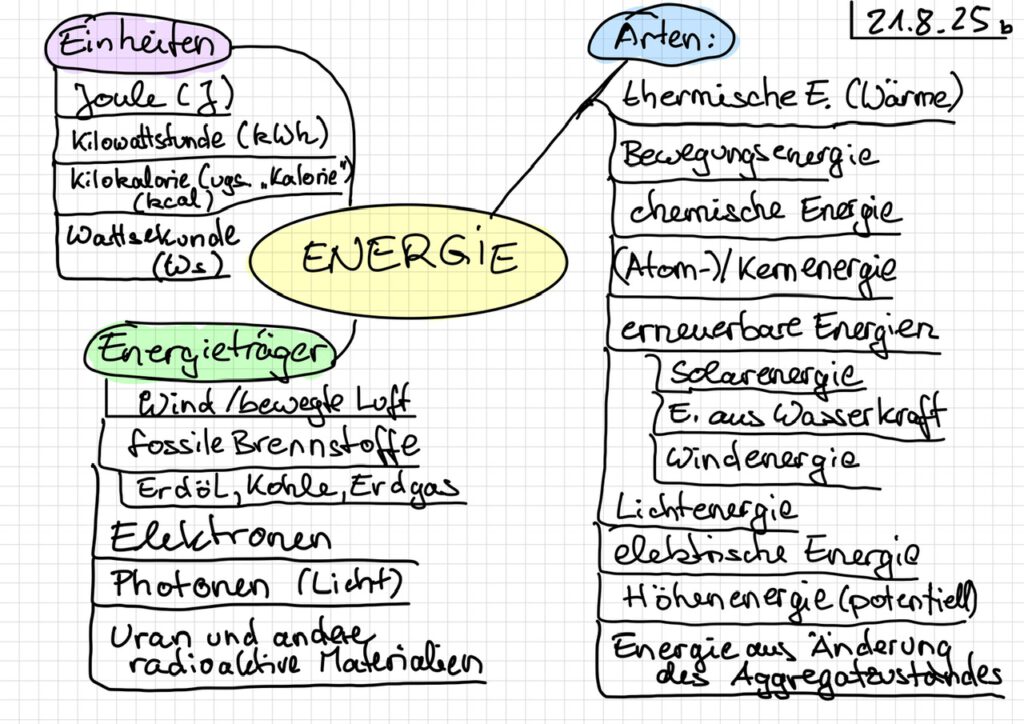 21.8.25 b
ENERGIE
Einheiten
Joule (J)
Kilowattstunde (kWh)
Kilokalorie (ugs. „Kalorie")
(kcal)
Wattsekunde
(Ws)
Energieträger
Wind/bewegte Luft
fossile Brennstoffe
Erdöl, Kohle, Erdgas
Elektronen
Photonen (Licht)
Uran und andere
radioaktive Materialien
Arten:
thermische E. (Wärme)
Bewegungsenergie
chemische Energie
(Atom-)/Kernenergie
erneuerbare Energien
Solarenergie
E. aus Wasserkraft
Windenergie
Lichtenergie
elektrische Energie
Höhenenergie (potentiell)
Energie aus Änderung
des Aggregatzustandes